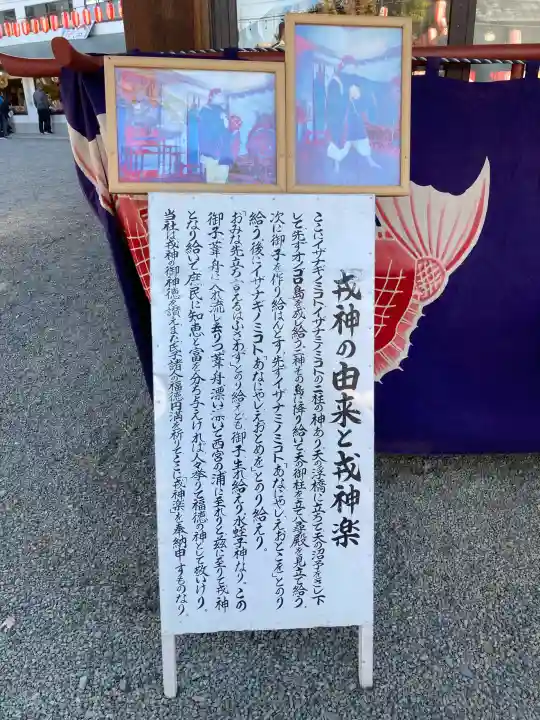 戎神の由来と戎神楽
ここにイザナギノミコトイザナミノミコトの二柱の神あり天の浮橋に立ちて天の沼矛をさし下
して先ずオノゴロ島を成し給う二神その島に降り給いて天の御柱を立て八尋殿を見立て給う
次に御子を作り給はんとす。先ずイザナミノミコト「あなにやしえおとこを」とのり
給う後にイザナギノミコト「あなにやしえおとめを」とのり給えり。
「おみな先立ち言えるはふさわず」とのり給えども御子生れ給えり水蛭子神なり、この
御子葦舟に入れ流し去りつ葦舟漂い漂いて西宮の浦に至れりと茲に至りて戎神
となり給いて庶民に知恵と富を分ち与えければ人々挙りて福徳の神として敬いけり。
当社は戎神の御神徳を讃えまた氏子諸々の福徳円満を祈りてここに「戎神楽」を奉納申すものなり。